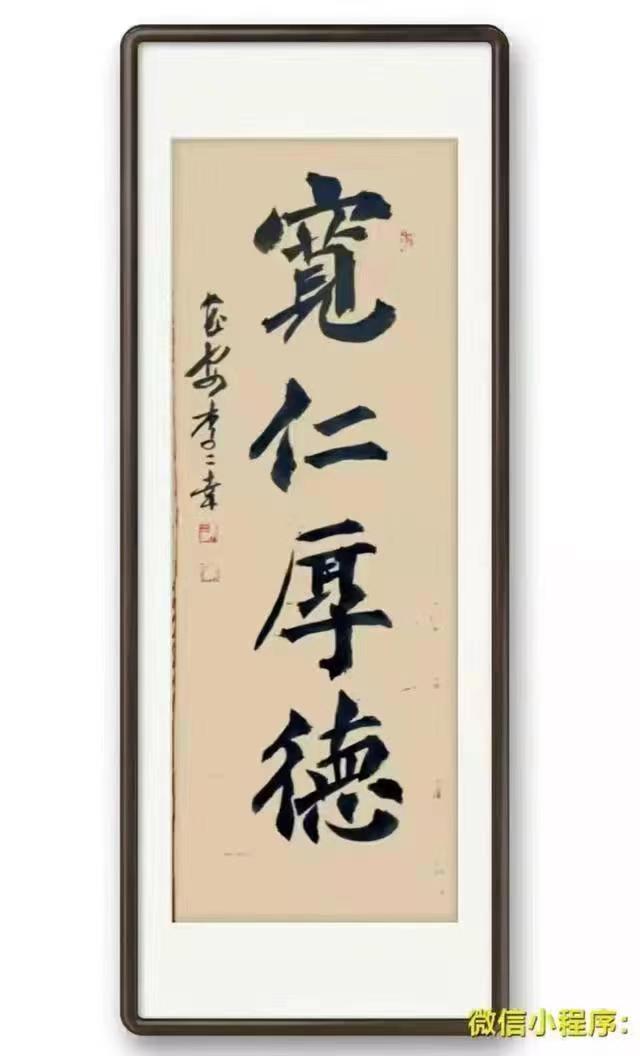 寬仁厚德
李二幸
微信小程序: